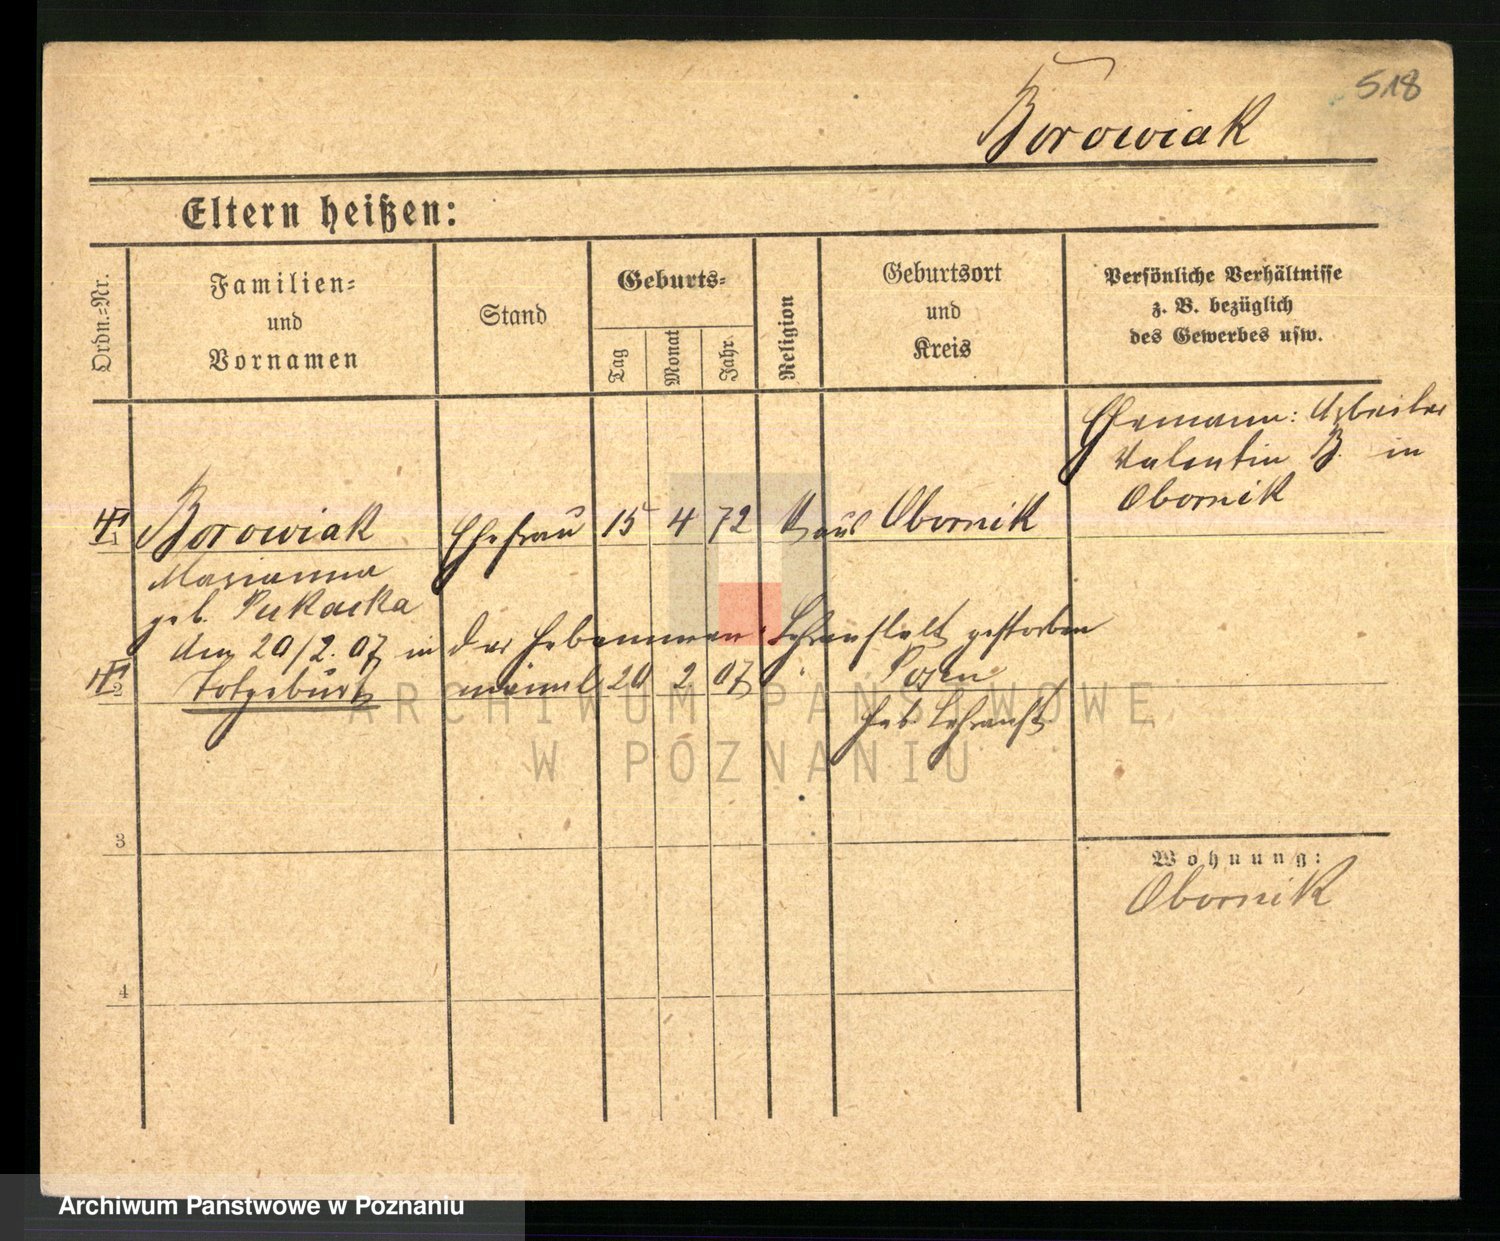 518
Borowiak
Eltern heißen:
Ordn.-Nr.
Familien-
und
Vornamen
Stand
Geburts-
Tag
Monat
Jahr
Religion
Geburtsort
und
Kreis
Persönliche Verhältnisse
z. B. bezüglich
des Gewerbes usw.
Ehemann: Arbeiter
Valentin B. in
Obornik
1 Borowiak Ehefrau 15 4 72 Obornik
Marianna
geb.
den 20/2. 07 in der Hebammen Lehranstalt gestorben
2 Totgeburt männl 20 2 07 Posen
Heb. Lehranst.
3
4
Wohnung:
Obornik
ARCHIWUM PAŃSTWOWE
W POZNANIU
Archiwum Państwowe w Poznaniu